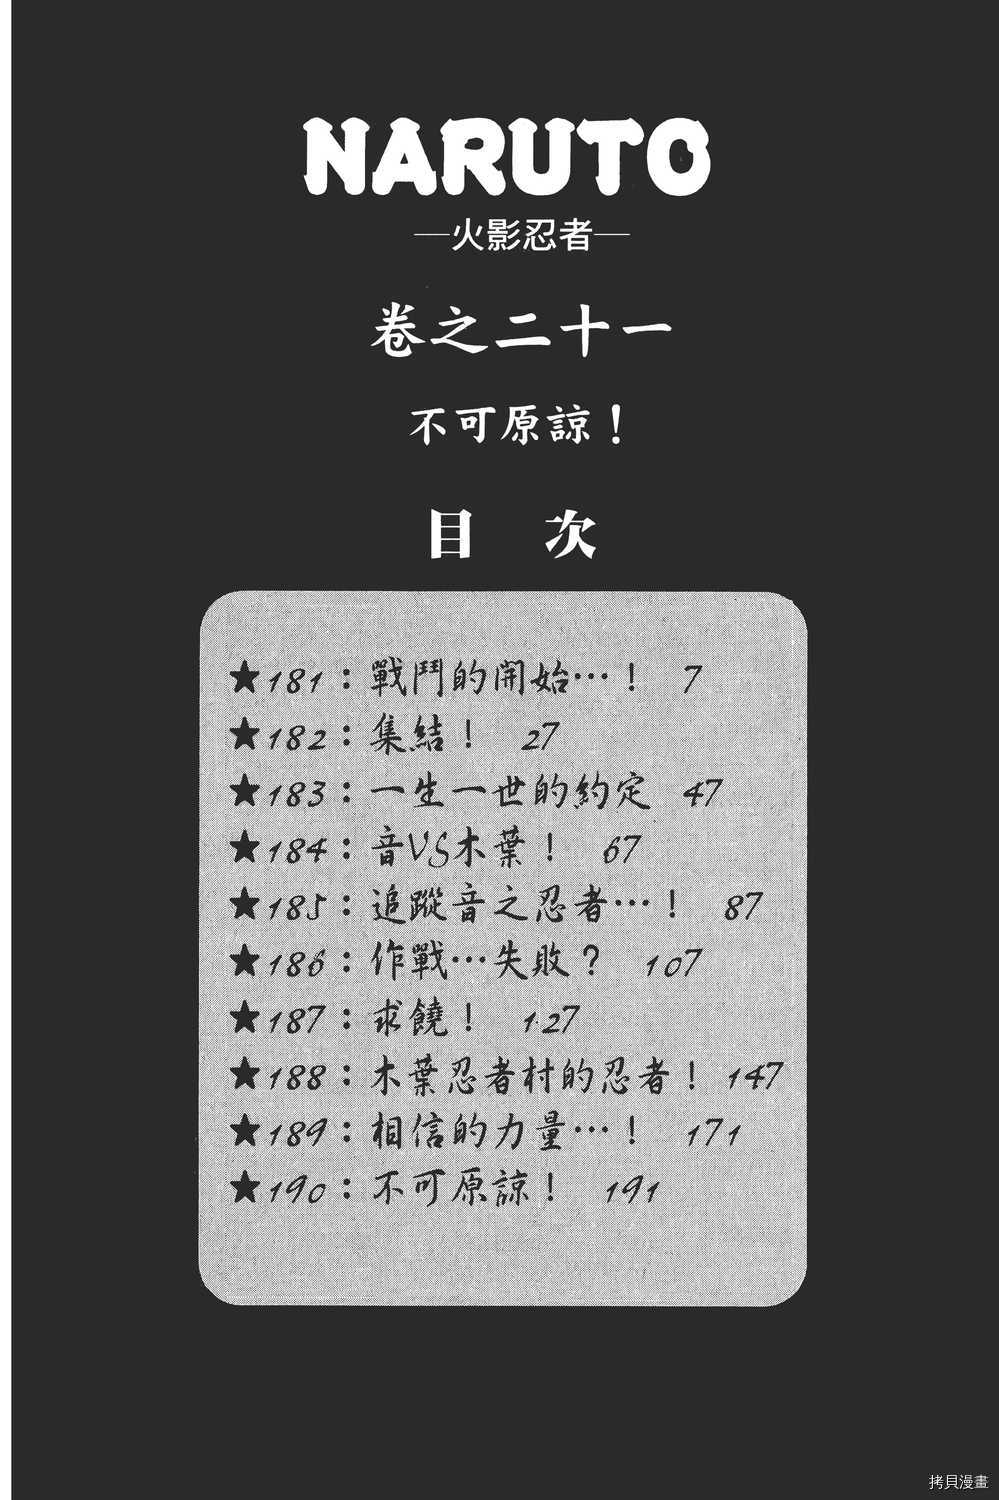 NARUTO
—火影忍者—
卷之二十一
不可原諒！
目 次
★181：戰鬥的開始…！ 7
★182：集結！ 27
★183：一生一世的約定 47
★184：音VS木葉！ 67
★185：追蹤音之忍者…！ 87
★186：作戰…失敗？ 107
★187：求饒！ 127
★188：木葉忍者村的忍者！ 147
★189：相信的力量…！ 171
★190：不可原諒！ 191
拷貝漫畫